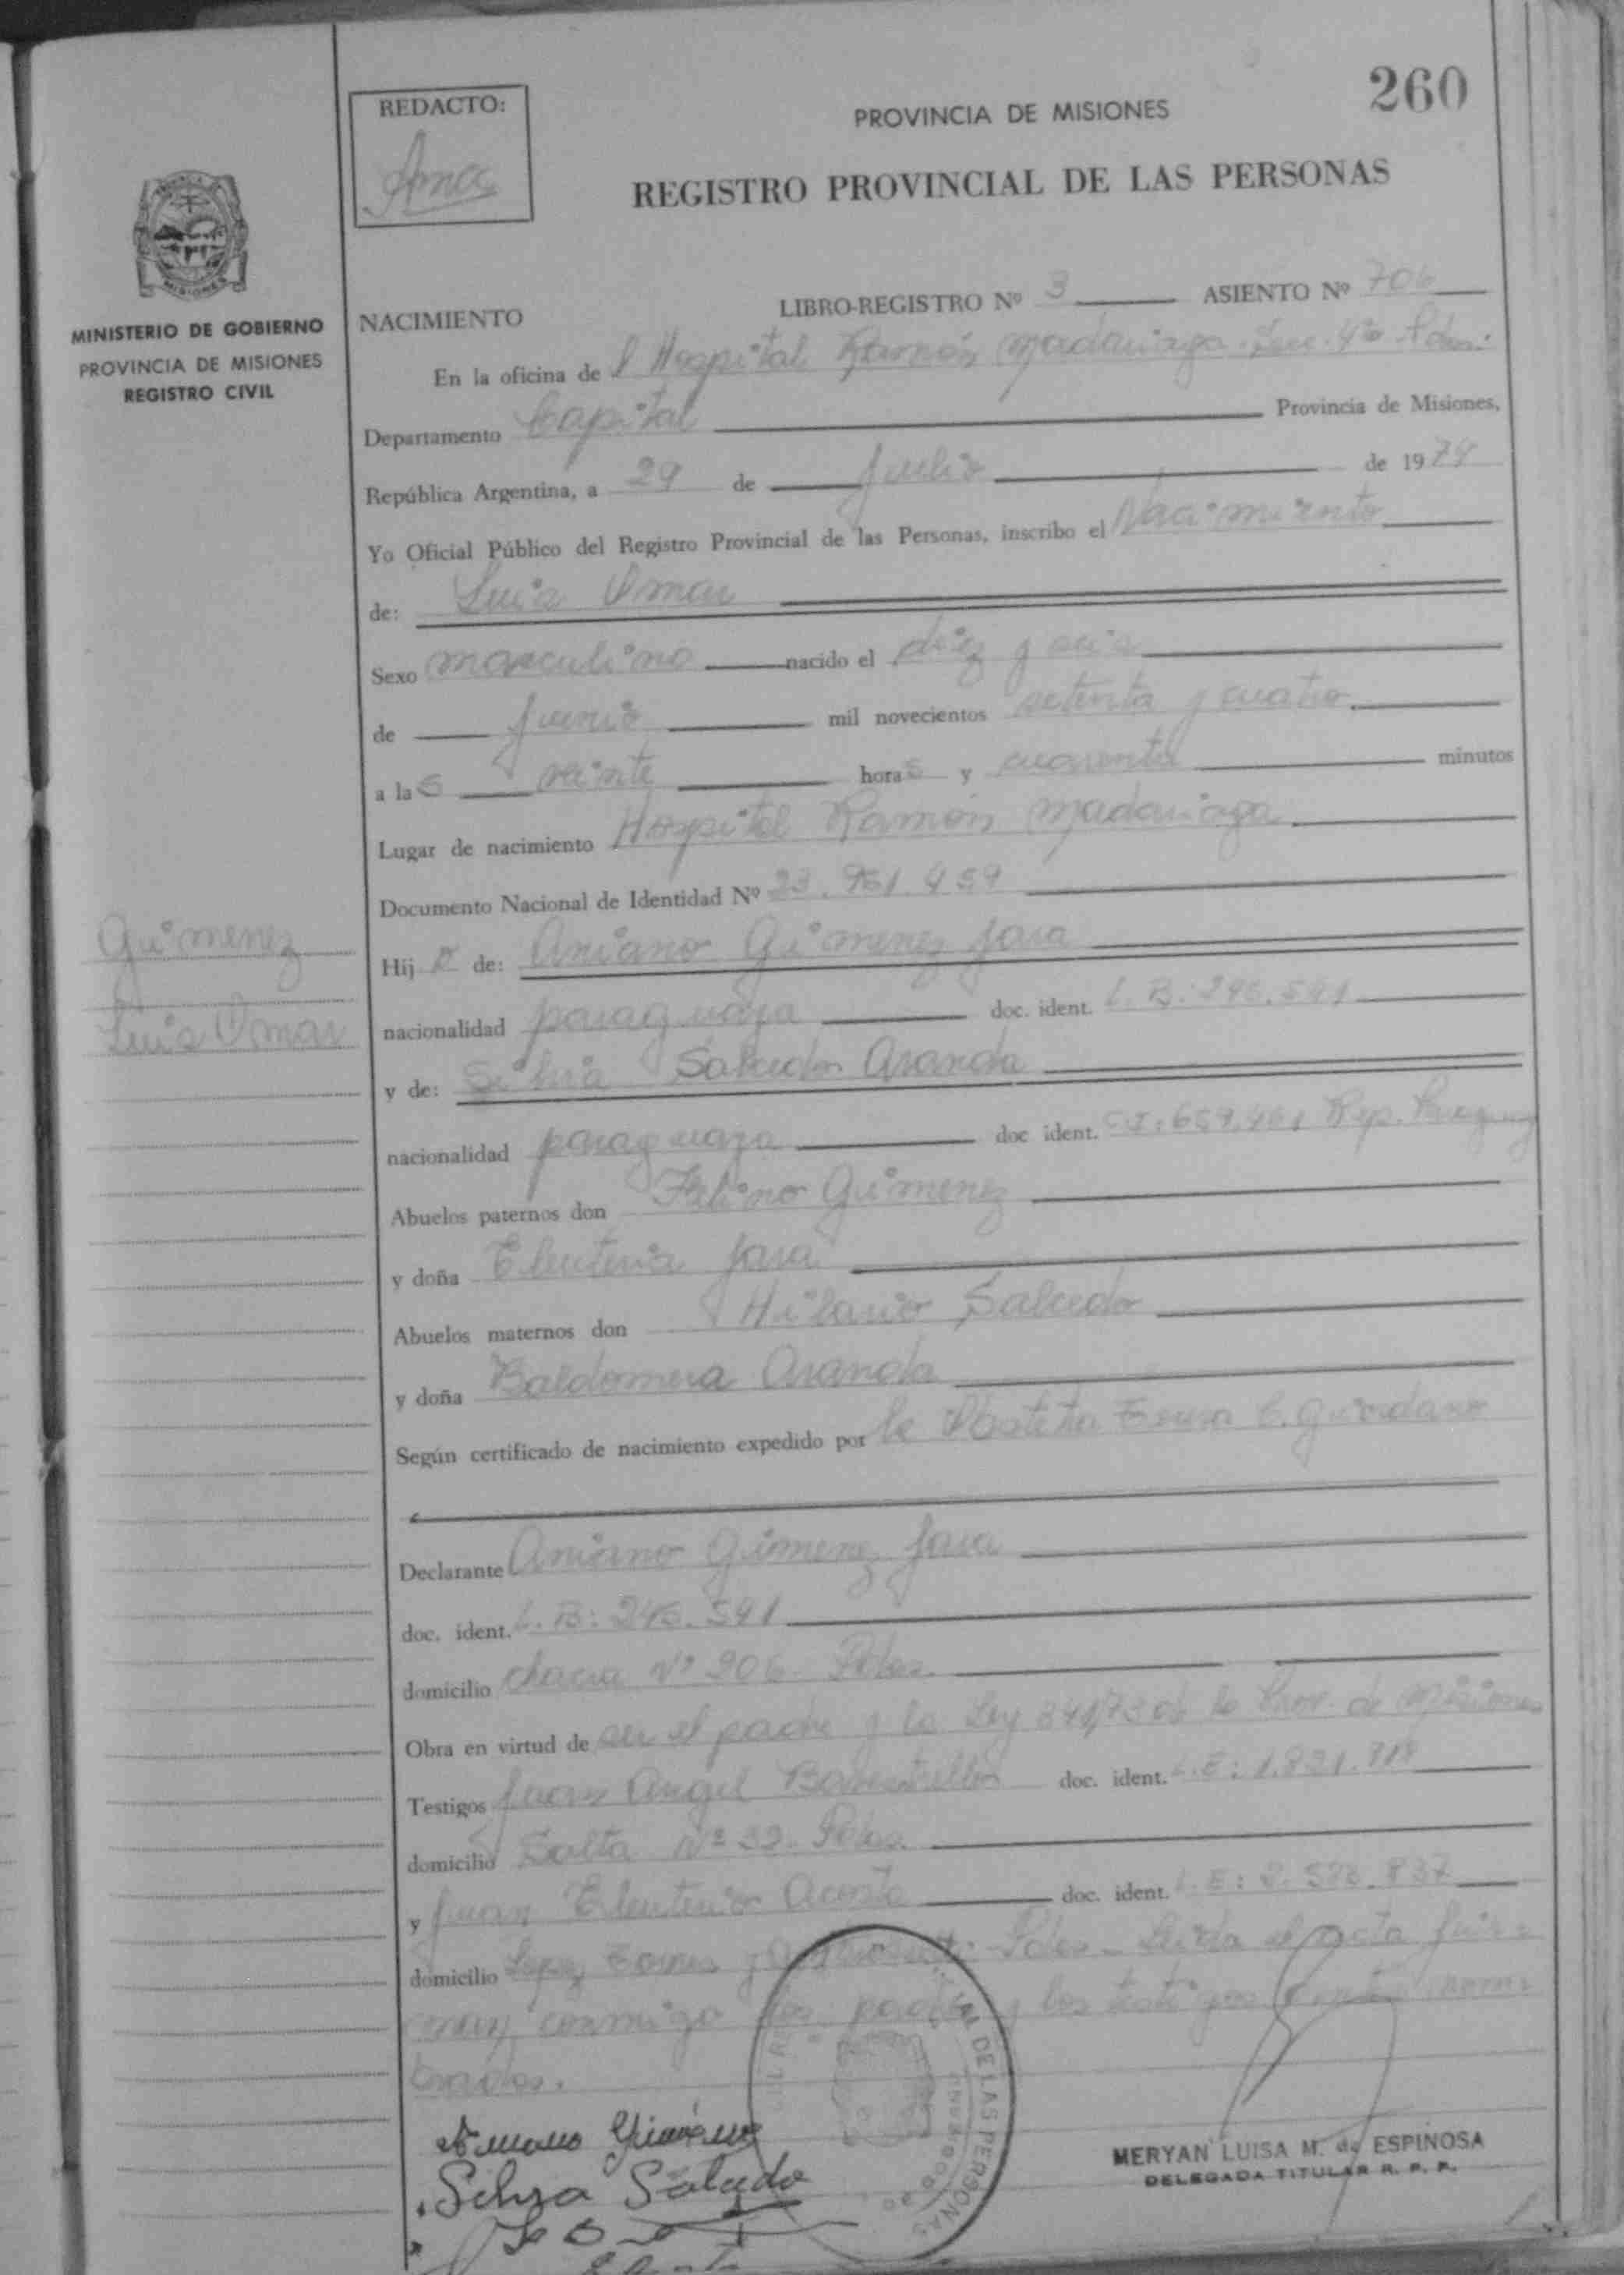 260
REDACTO:
PROVINCIA DE MISIONES
REGISTRO PROVINCIAL DE LAS PERSONAS
MISIONES
MINISTERIO DE GOBIERNO
PROVINCIA DE MISIONES
REGISTRO CIVIL
NACIMIENTO LIBRO-REGISTRO Nº 3 ASIENTO Nº 706
En la oficina de l Hospital Ramón Madariaga
Departamento Capital Provincia de Misiones,
República Argentina, a 29 de Julio de 1974
Yo Oficial Público del Registro Provincial de las Personas, inscribo el Nacimiento
de: Luis Omar
Sexo masculino nacido el diez y seis
de junio mil novecientos setenta y cuatro
a las veinte horas y cuarenta minutos
Lugar de nacimiento Hospital Ramón Madariaga
Documento Nacional de Identidad Nº 23.961.459
Gimenez
Luis Omar
Hijo de: Aniano Gimenez Jara
nacionalidad paraguaya doc. ident.
y de: Silvia Salcedo Aranda
nacionalidad paraguaya doc ident. C.I: 659.461 Rep. Paraguay
Abuelos paternos don Gimenez
y doña Eleuteria Jara
Abuelos maternos don Hilario Salcedo
y doña Baldomera Aranda
Según certificado de nacimiento expedido por la Obstetra
Declarante Aniano Gimenez Jara
doc. ident.
domicilio chacra Nº 206 Pdas.
Obra en virtud de ser el padre y la Ley de la Prov. de Misiones
Testigos Juan Angel doc. ident. L.E: 1.821.718
domicilio Salta Nº Pdas.
y Juan Eleuterio Acosta doc. ident. L.E:
domicilio Lopez Torres y Pdas - Leída el acta fir=
man conmigo los padres y los testigos nom=
brados.
Aniano Gimenez
Silvia Salcedo
DE LAS PERSONAS
MERYAN LUISA M. de ESPINOSA
DELEGADA TITULAR R. P. P.